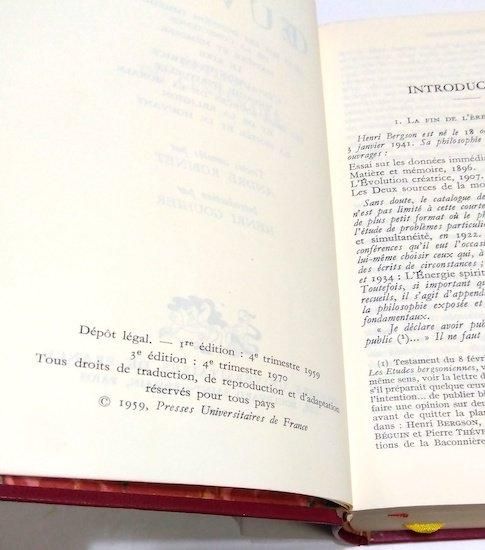 Dépôt légal. — 1re édition : 4e trimestre 1959
3e édition : 4e trimestre 1970
Tous droits de traduction, de reproduction et d'adaptation
réservés pour tous pays
© 1959, Presses Universitaires de France
INTRODUC
1. LA FIN DE L'ÈRE
Henri Bergson est né le 18 o
3 janvier 1941. Sa philosophie
ouvrages :
Essai sur les données immédi
Matière et mémoire, 1896.
L'Évolution créatrice, 1907.
Les Deux sources de la mo
Sans doute, le catalogue de
n'est pas limité à cette courte
de plus petit format où le ph
l'étude de problèmes particuli
et simultanéité, en 1922.
conférences qu'il eut l'occasi
lui-même choisir ceux qui, à
des écrits de circonstances ;
et 1934 : L'Énergie spirit
Toutefois, si important qu
recueils, il s'agit d'append
la philosophie exposée et
fondamentaux.
« Je déclare avoir pub
public (1)... » Il ne faut
(1) Testament du 8 févr
Les Etudes bergsoniennes,
même sens, voir la lettre d
s'il préparait quelque œuv
l'intention... de publier bi
faire une opinion sur deu
avant de quitter la plan
dans : Henri BERGSON,
BÉGUIN et Pierre THÉVE
tions de la Baconnière